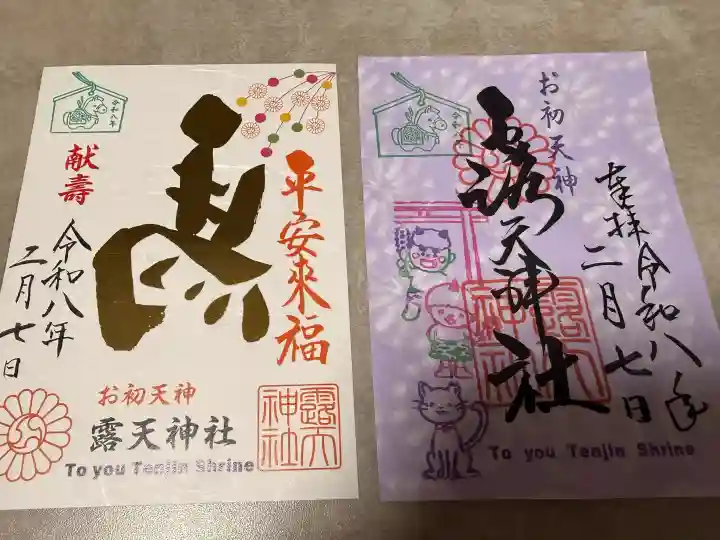 令和八年
献壽
平安來福
令和八年
二月七日
お初天神
露天神社
露天神社
To you Tenjin Shrine
お初天神
露天神社
奉拝
令和八年
二月七日
露天神社
To you Tenjin Shrine